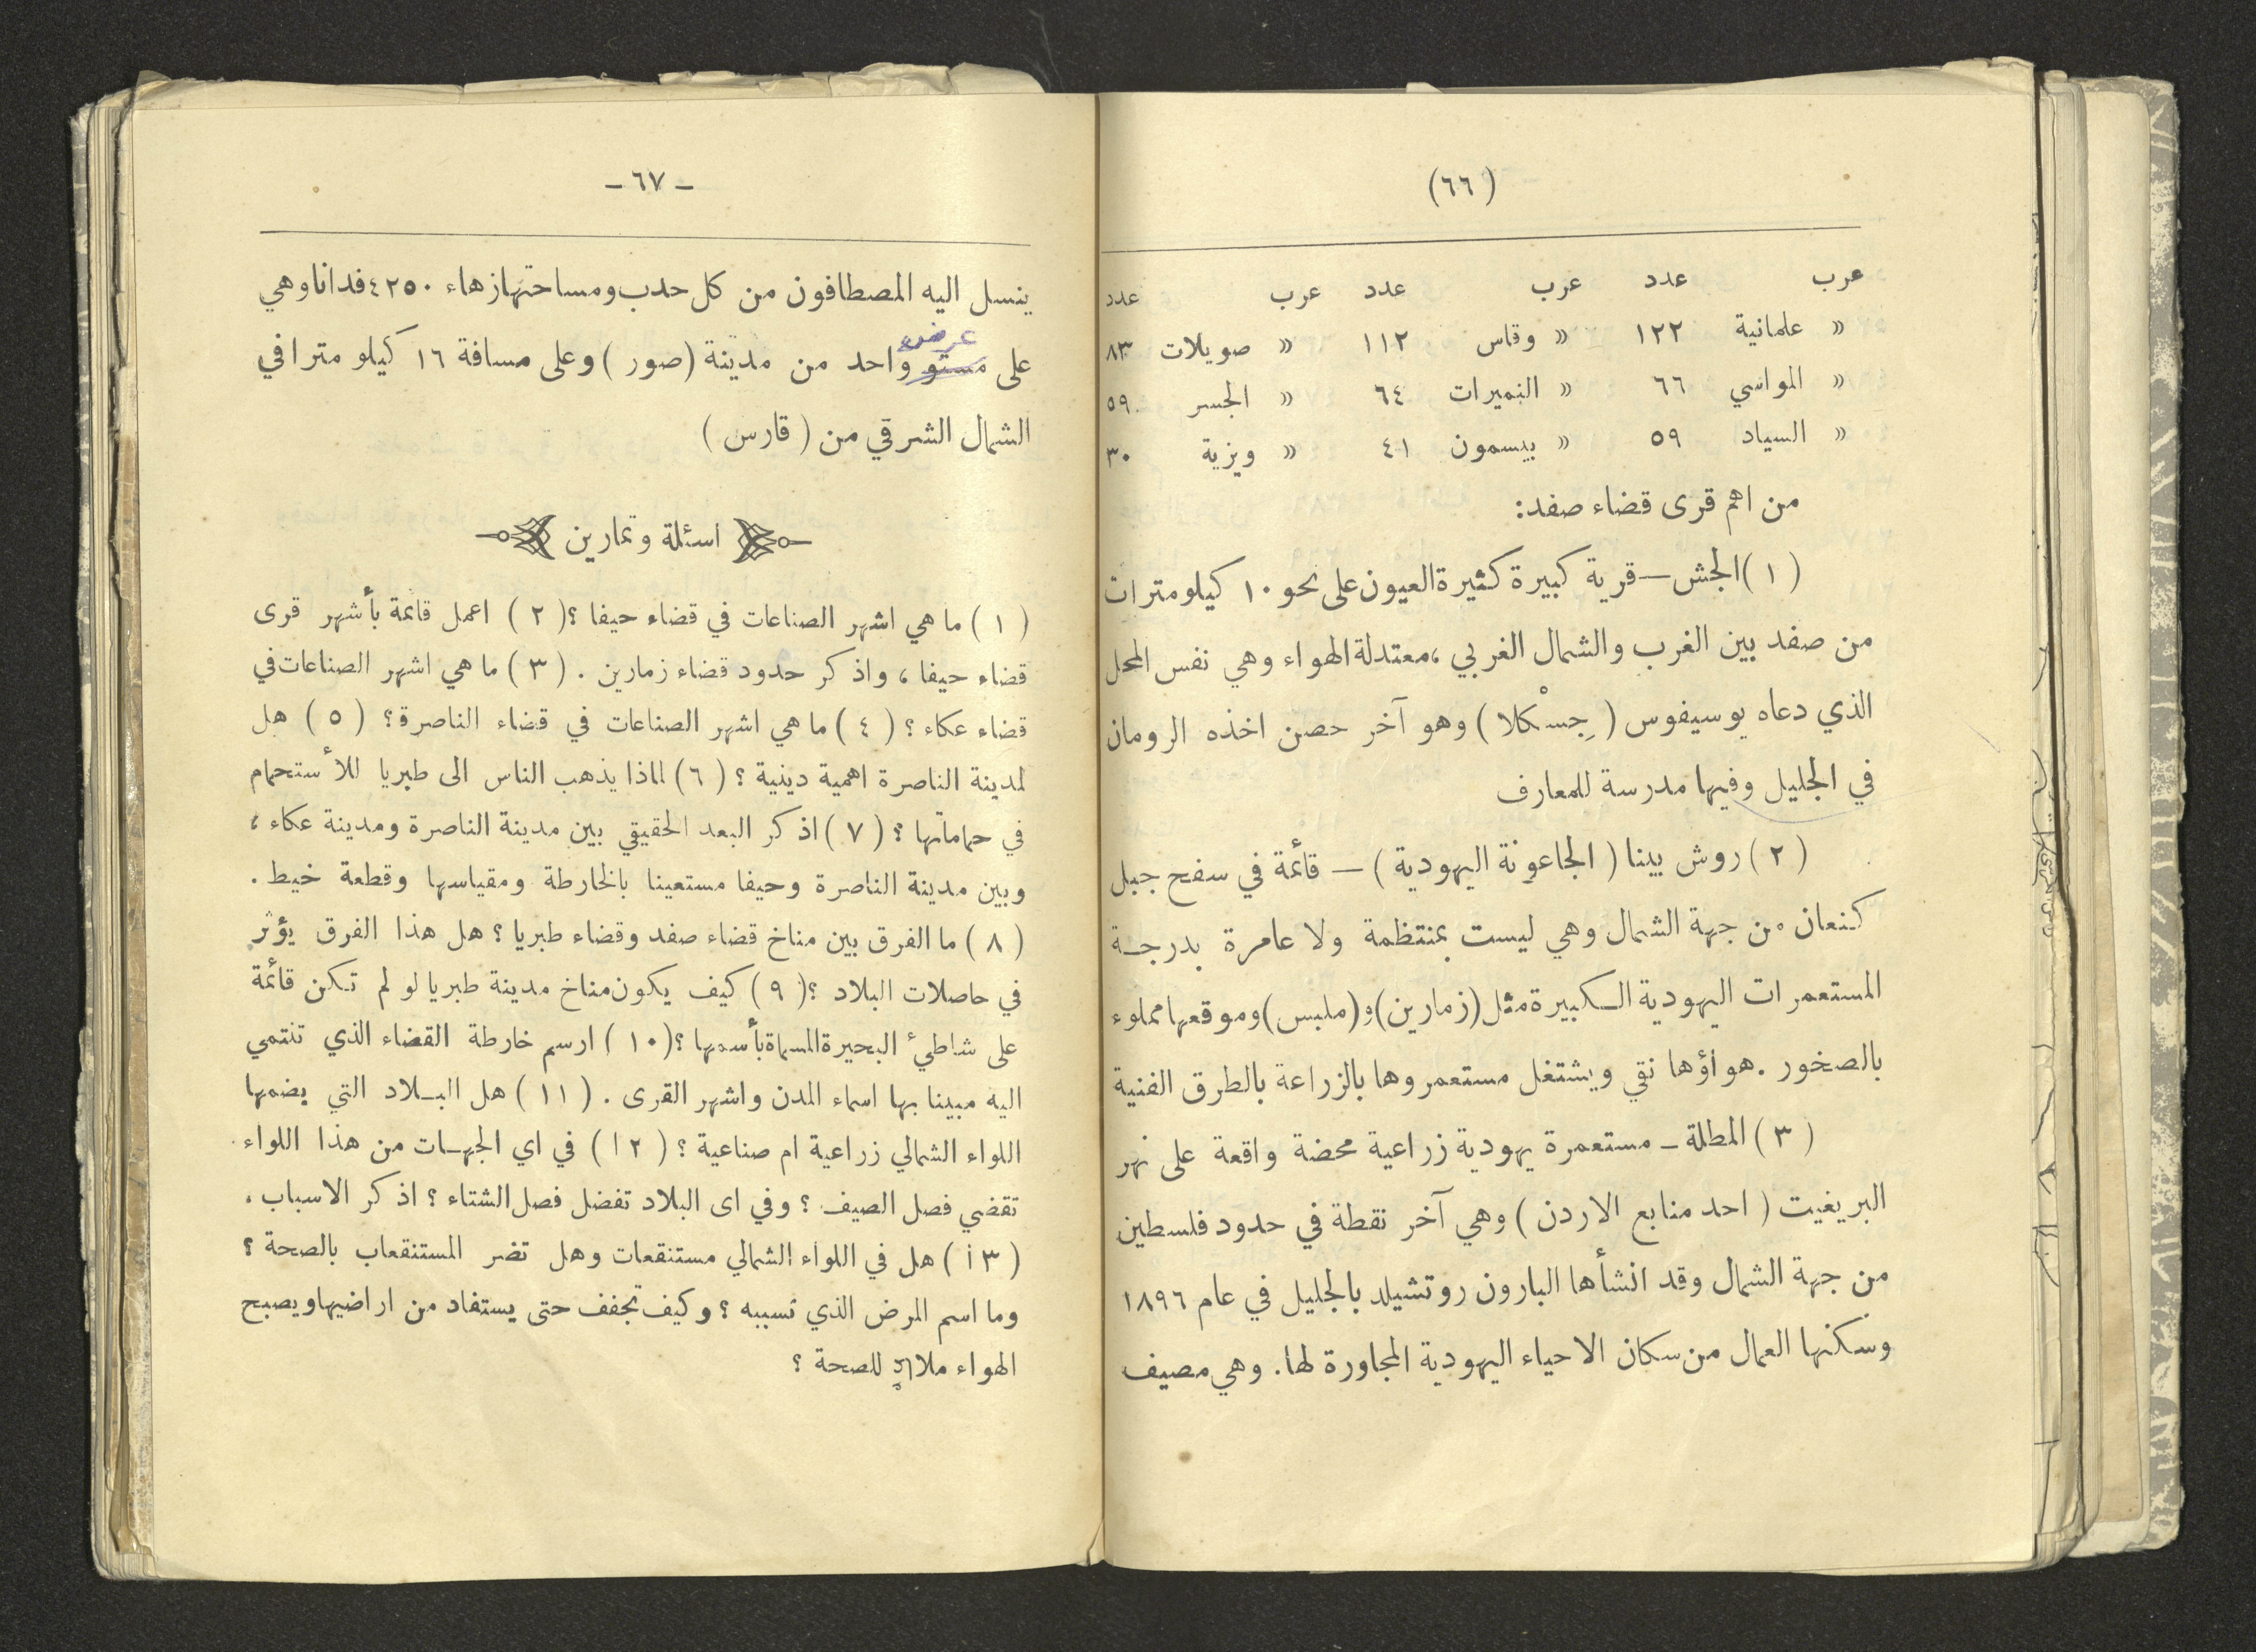 (٦٦)
عرب عدد عرب عدد عرب عدد
« علمانية ١٢٢ « وقاس ١١٢ « صويلات ٨٣
« المواسي ٦٦ « النميرات ٦٤ « الجسر ٥٩
« السياد ٥٩ « بيسمون ٤١ « ويزية ٣٠
من اهم قرى قضاء صفد:
(١) الجش — قرية كبيرة كثيرة العيون على نحو ١٠ كيلو مترات
من صفد بين الغرب والشمال الغربي ، معتدلة الهواء وهي نفس المحل
الذي دعاه يوسيفوس (جِسْكلا) وهو آخر حصن اخذه الرومان
في الجليل وفيها مدرسة للمعارف
(٢) روش بينا (الجاعونة اليهودية) — قائمة في سفح جبل
كنعان من جهة الشمال وهي ليست بمنتظمة ولا عامرة بدرجة
المستعمرات اليهودية الكبيرة مثل (زمارين) و(ملبس) وموقعها مملوء
بالصخور . هواؤها نقي ويشتغل مستعمروها بالزراعة بالطرق الفنية
(٣) المطلة — مستعمرة يهودية زراعية محضة واقعة على نهر
البريغيت (احد منابع الاردن) وهي آخر نقطة في حدود فلسطين
من جهة الشمال وقد انشأها البارون روتشيلد بالجليل في عام ١٨٩٦
وسكنها العمال من سكان الاحياء اليهودية المجاورة لها. وهي مصيف
— ٦٧ —
ينسل اليه المصطافون من كل حدب ومساحتها زهاء ٤٢٥٠ فدانا وهي
عرض
على مستو واحد من مدينة (صور) وعلى مسافة ١٦ كيلو مترا في
الشمال الشرقي من (قارس)
اسئلة وتمارين
(١) ما هي اشهر الصناعات في قضاء حيفا ؟ (٢) اعمل قائمة بأشهر قرى
قضاء حيفا ، واذكر حدود قضاء زمارين . (٣) ما هي اشهر الصناعات في
قضاء عكاء ؟ (٤) ما هي اشهر الصناعات في قضاء الناصرة ؟ (٥) هل
لمدينة الناصرة اهمية دينية ؟ (٦) لماذا يذهب الناس الى طبريا للأستحمام
في حماماتها ؟ (٧) اذكر البعد الحقيقي بين مدينة الناصرة ومدينة عكاء ،
وبين مدينة الناصرة وحيفا مستعينا بالخارطة ومقياسها وقطعة خيط .
(٨) ما الفرق بين مناخ قضاء صفد وقضاء طبريا ؟ هل هذا الفرق يؤثر
في حاصلات البلاد ؟ (٩) كيف يكون مناخ مدينة طبريا لو لم تكن قائمة
على شاطىء البحيرة المسماة بأسمها ؟ (١٠) ارسم خارطة القضاء الذي تنتمي
اليه مبينا بها اسماء المدن واشهر القرى . (١١) هل البلاد التي يضمها
اللواء الشمالي زراعية ام صناعية ؟ (١٢) في اي الجهات من هذا اللواء
تقضي فصل الصيف ؟ وفي اى البلاد تفضل فصل الشتاء ؟ اذكر الاسباب .
(١٣) هل في اللواء الشمالي مستنقعات وهل تضر المستنقعاب بالصحة ؟
وما اسم المرض الذي تسببه ؟ وكيف تجفف حتى يستفاد من اراضيها ويصبح
الهواء للصحة ؟